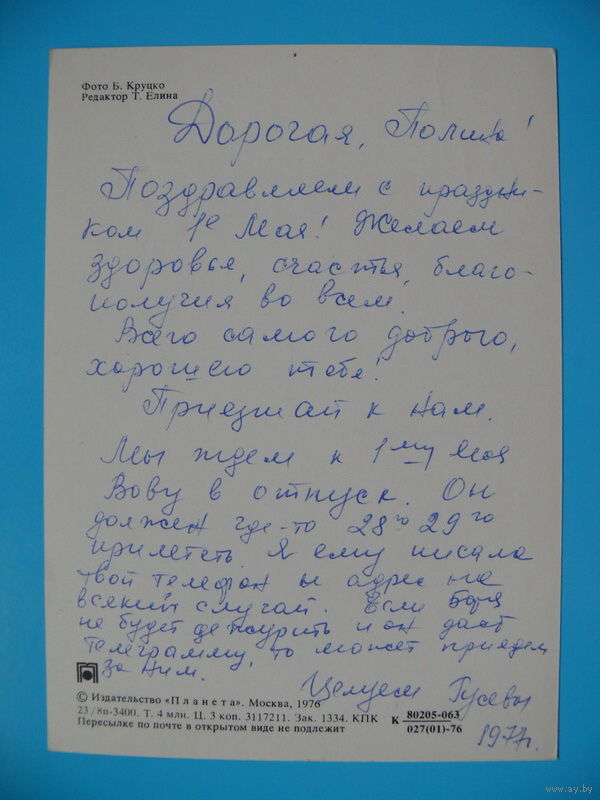 Фото Б. Круцко
Редактор Т. Елина
Дорогая, Полина!
Поздравляем с праздни-
ком 1е Мая! Желаем
здоровья, счастья, благо-
получия во всем!
Всего самого доброго,
хорошего тебе!
Приезжай к нам.
Мы ждем к 1му Мая
Вову в отпуск. Он
должен где-то 28го 29го
прилететь. Я ему писала
твой телефон и адрес на
всякий случай. Если Боря
не будет дежурить и он даст
телеграмму, то может приедет
за ним.
Целуем Гусевы
1977г.
© Издательство «Планета». Москва, 1976
23/8п-3400. Т. 4 млн. Ц. 3 коп. 3117211. Зак. 1334. КПК
К 80205-063
027(01)-76
Пересылке по почте в открытом виде не подлежит
www.ay.by